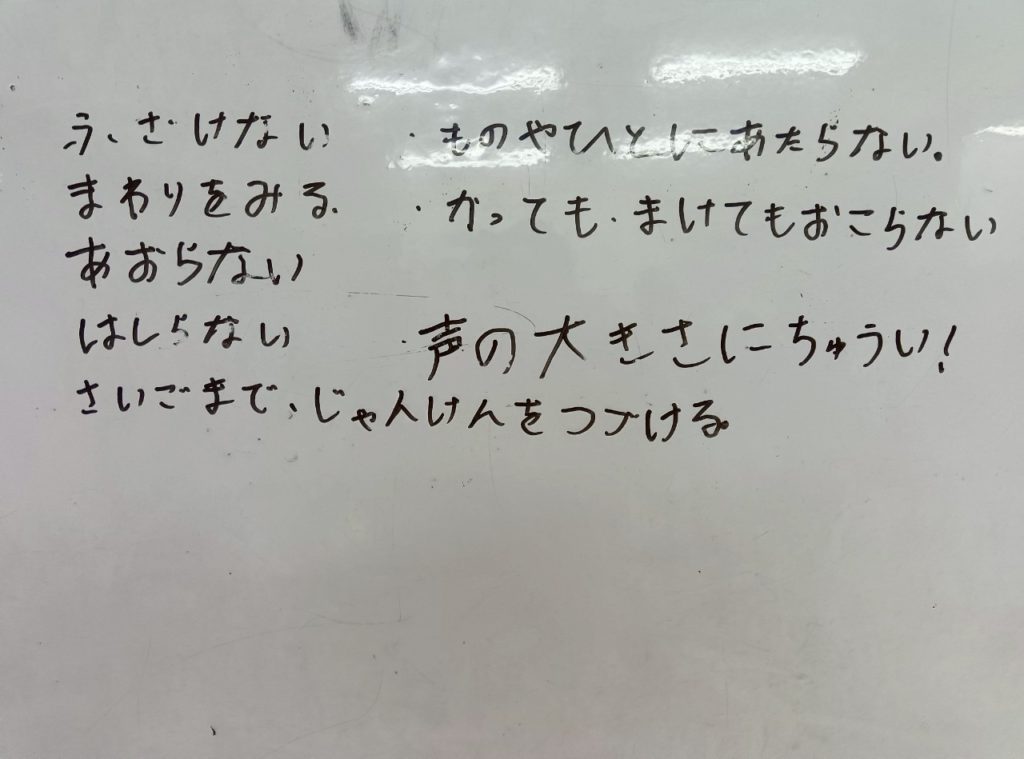 ふざけない
まわりをみる。
あおらない
はしらない
さいごまで、じゃんけんをつづける。
・ものやひとにあたらない。
・かっても・まけてもおこらない
・声の大きさにちゅうい!